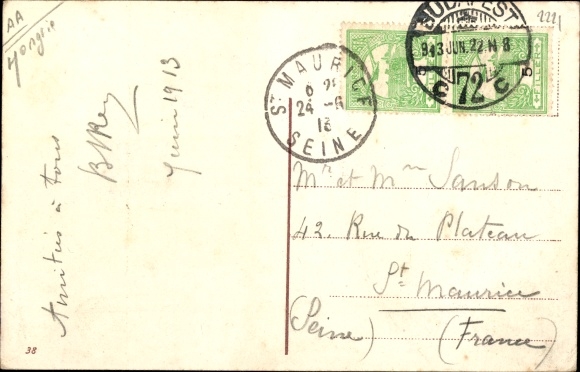 AA
Hongrie
2221
BUDAPEST
913 JUN. 22 N 8
72
5
5
ST MAURICE
6
24 - 6
13
SEINE
Amitiés à tous
Juin 1913
Mr et Mme Sanson
42. Rue du Plateau
St Maurice
(Seine) (France)
38